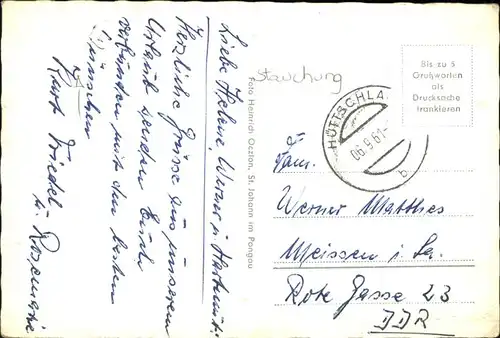 Liebe Helene, Werner u. Hartmut!
Herzliche Grüsse aus unserem
Urlaub senden Euch
verbunden mit den besten
Wünschen
Kurt, Friedel
u. Rosemarie
Foto Heinrich Oczlon, St. Johann im Pongau
Stauchung
Bis zu 5
Grußworten
als
Drucksache
frankieren
HÜTTSCHLA
06.9.61-
b
Fam.
Werner Matthes
Meissen i. Sa.
Rote Gasse 23
DDR